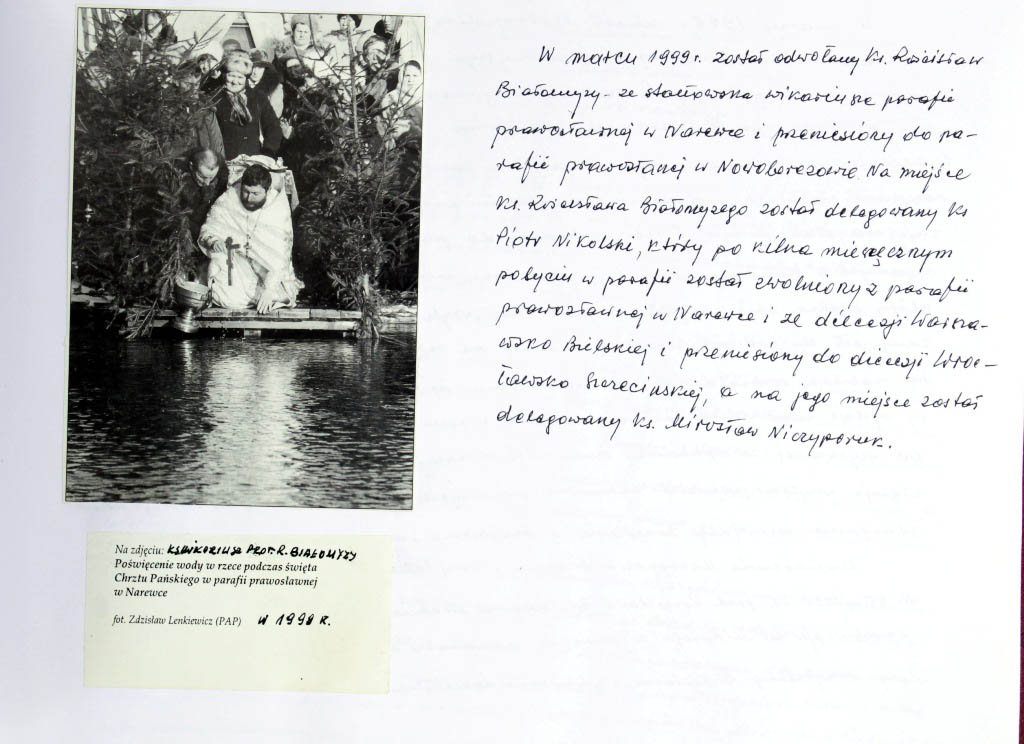 W marcu 1999 r. został odwołany ks. Rościsław
Białomyzy - ze stanowska wikariusza parafii
prawosławnej w Narewce i przeniesiony do pa-
rafii prawosławnej w Nowoberezowie. Na miejsce
ks. Rościsława Białomyzego został delegowany ks
Piotr Nikolski, który po kilna miesięcznym
pobyciu w parafii został zwolniony z parafii
prawosławnej w Narewce i ze diecezji Warsza-
wsko Bielskiej i przeniesiony do diecezji Wroc-
ławsko Szczecinskiej, a na jego miejsce został
delegowany ks. Mirosław Niczyporuk.
Na zdjęciu: KS. WIKARIUSZ PROT. R. BIAŁOMYZY
Poświęcenie wody w rzece podczas święta
Chrztu Pańskiego w parafii prawosławnej
w Narewce
fot. Zdzisław Lenkiewicz (PAP) W 1998 R.